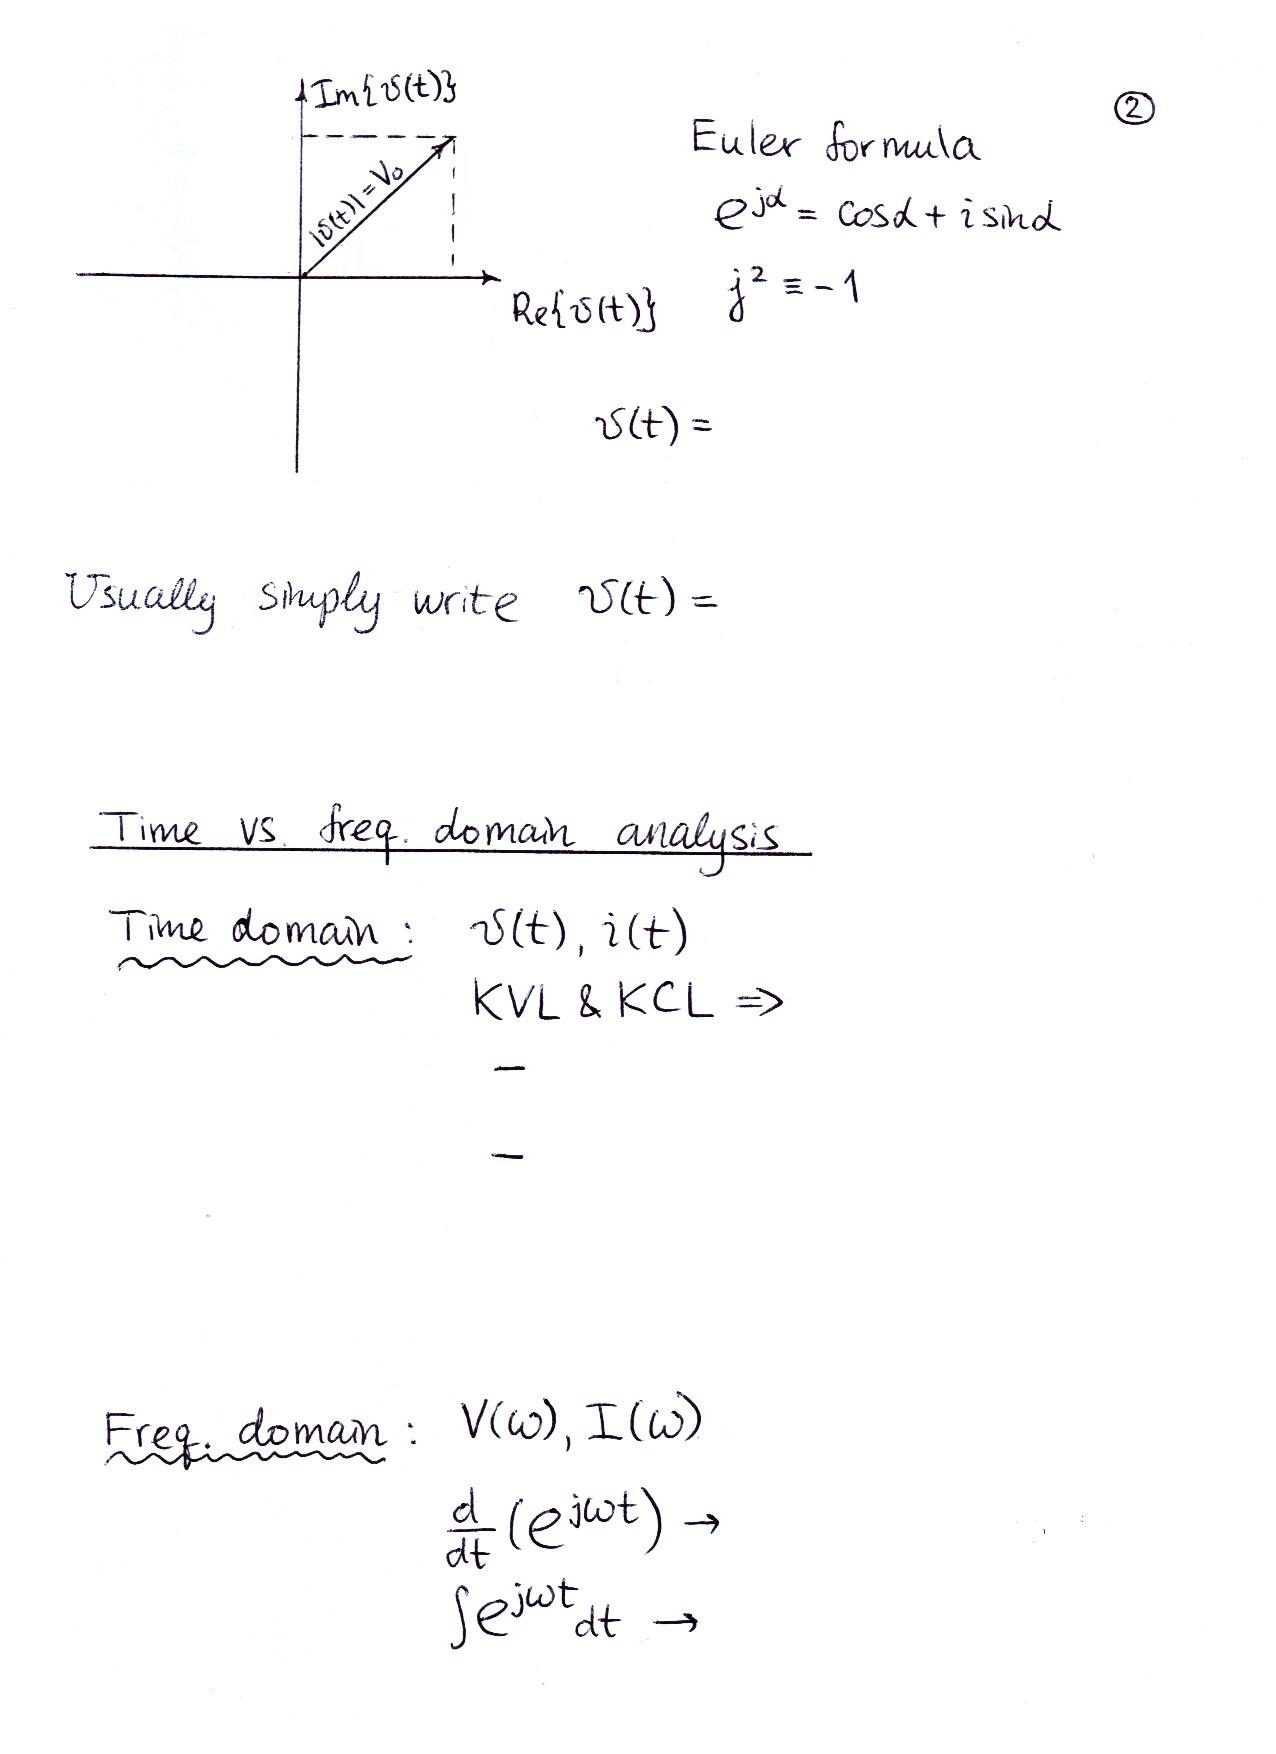 ②
Im{v(t)}
|v(t)| = V₀
Re{v(t)}
Euler formula
e^{jα} = cosα + i sinα
j² ≡ -1
v(t) =
Usually simply write v(t) =
Time vs. freq. domain analysis
Time domain : v(t), i(t)
KVL & KCL ⇒
–
–
Freq. domain : V(ω), I(ω)
d/dt (e^{jωt}) →
∫e^{jωt} dt →